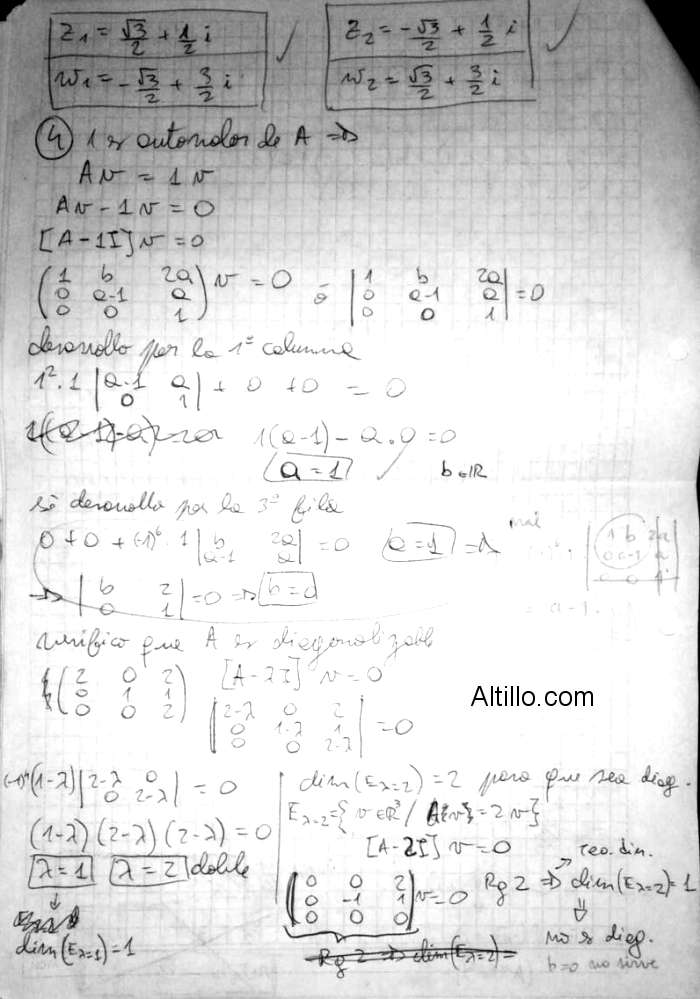 z₁ = √3/2 + 1/2 i ✓ z₂ = -√3/2 + 1/2 i ✓
w₁ = -√3/2 + 3/2 i w₂ = √3/2 + 3/2 i
④ 1 es autovalor de A ⇒
Av = 1v
Av - 1v = 0
[A - 1I]v = 0
(1 b 2a) v = 0 ó |1 b 2a| = 0
(0 a-1 a) |0 a-1 a|
(0 0 1) |0 0 1|
desarrollo por la 1ª columna
1². 1 |a-1 a| + 0 + 0 = 0
|0 1|
1(a-1) - a.0 = 0
a = 1 ✓ b ∈ ℝ
si desarrollo por la 3ª fila
0 + 0 + (-1)⁶. 1 |b 2a| = 0 a = 1 ⇒ mal |1 b 2a|
|a-1 a| |0 a-1 a|
|0 0 1|
⇒ |b 2| = 0 ⇒ b = 0 = a-1.
|0 1|
verifico que A es diagonalizable
(2 0 2) [A - λI] v = 0
(0 1 1)
(0 0 2) |2-λ 0 2|
|0 1-λ 1| = 0
|0 0 2-λ|
Altillo.com
(-1)⁴(1-λ) |2-λ 0| = 0
|0 2-λ|
(1-λ)(2-λ)(2-λ) = 0
λ=1 λ=2 doble
↓
dim(Eλ=1) = 1
dim(Eλ=2) = 2 para que sea diag.
Eλ=2 = { v ∈ ℝ³ / A{v} = 2v}
[A - 2I] v = 0
(0 0 2) v = 0 Rg 2 ⇒ dim(Eλ=2) = 1
(0 -1 1)
(0 0 0)
teo. dim.
⇓
no es diag.
b=0 no sirve
Rg 2 ⇒ dim(Eλ=2) =